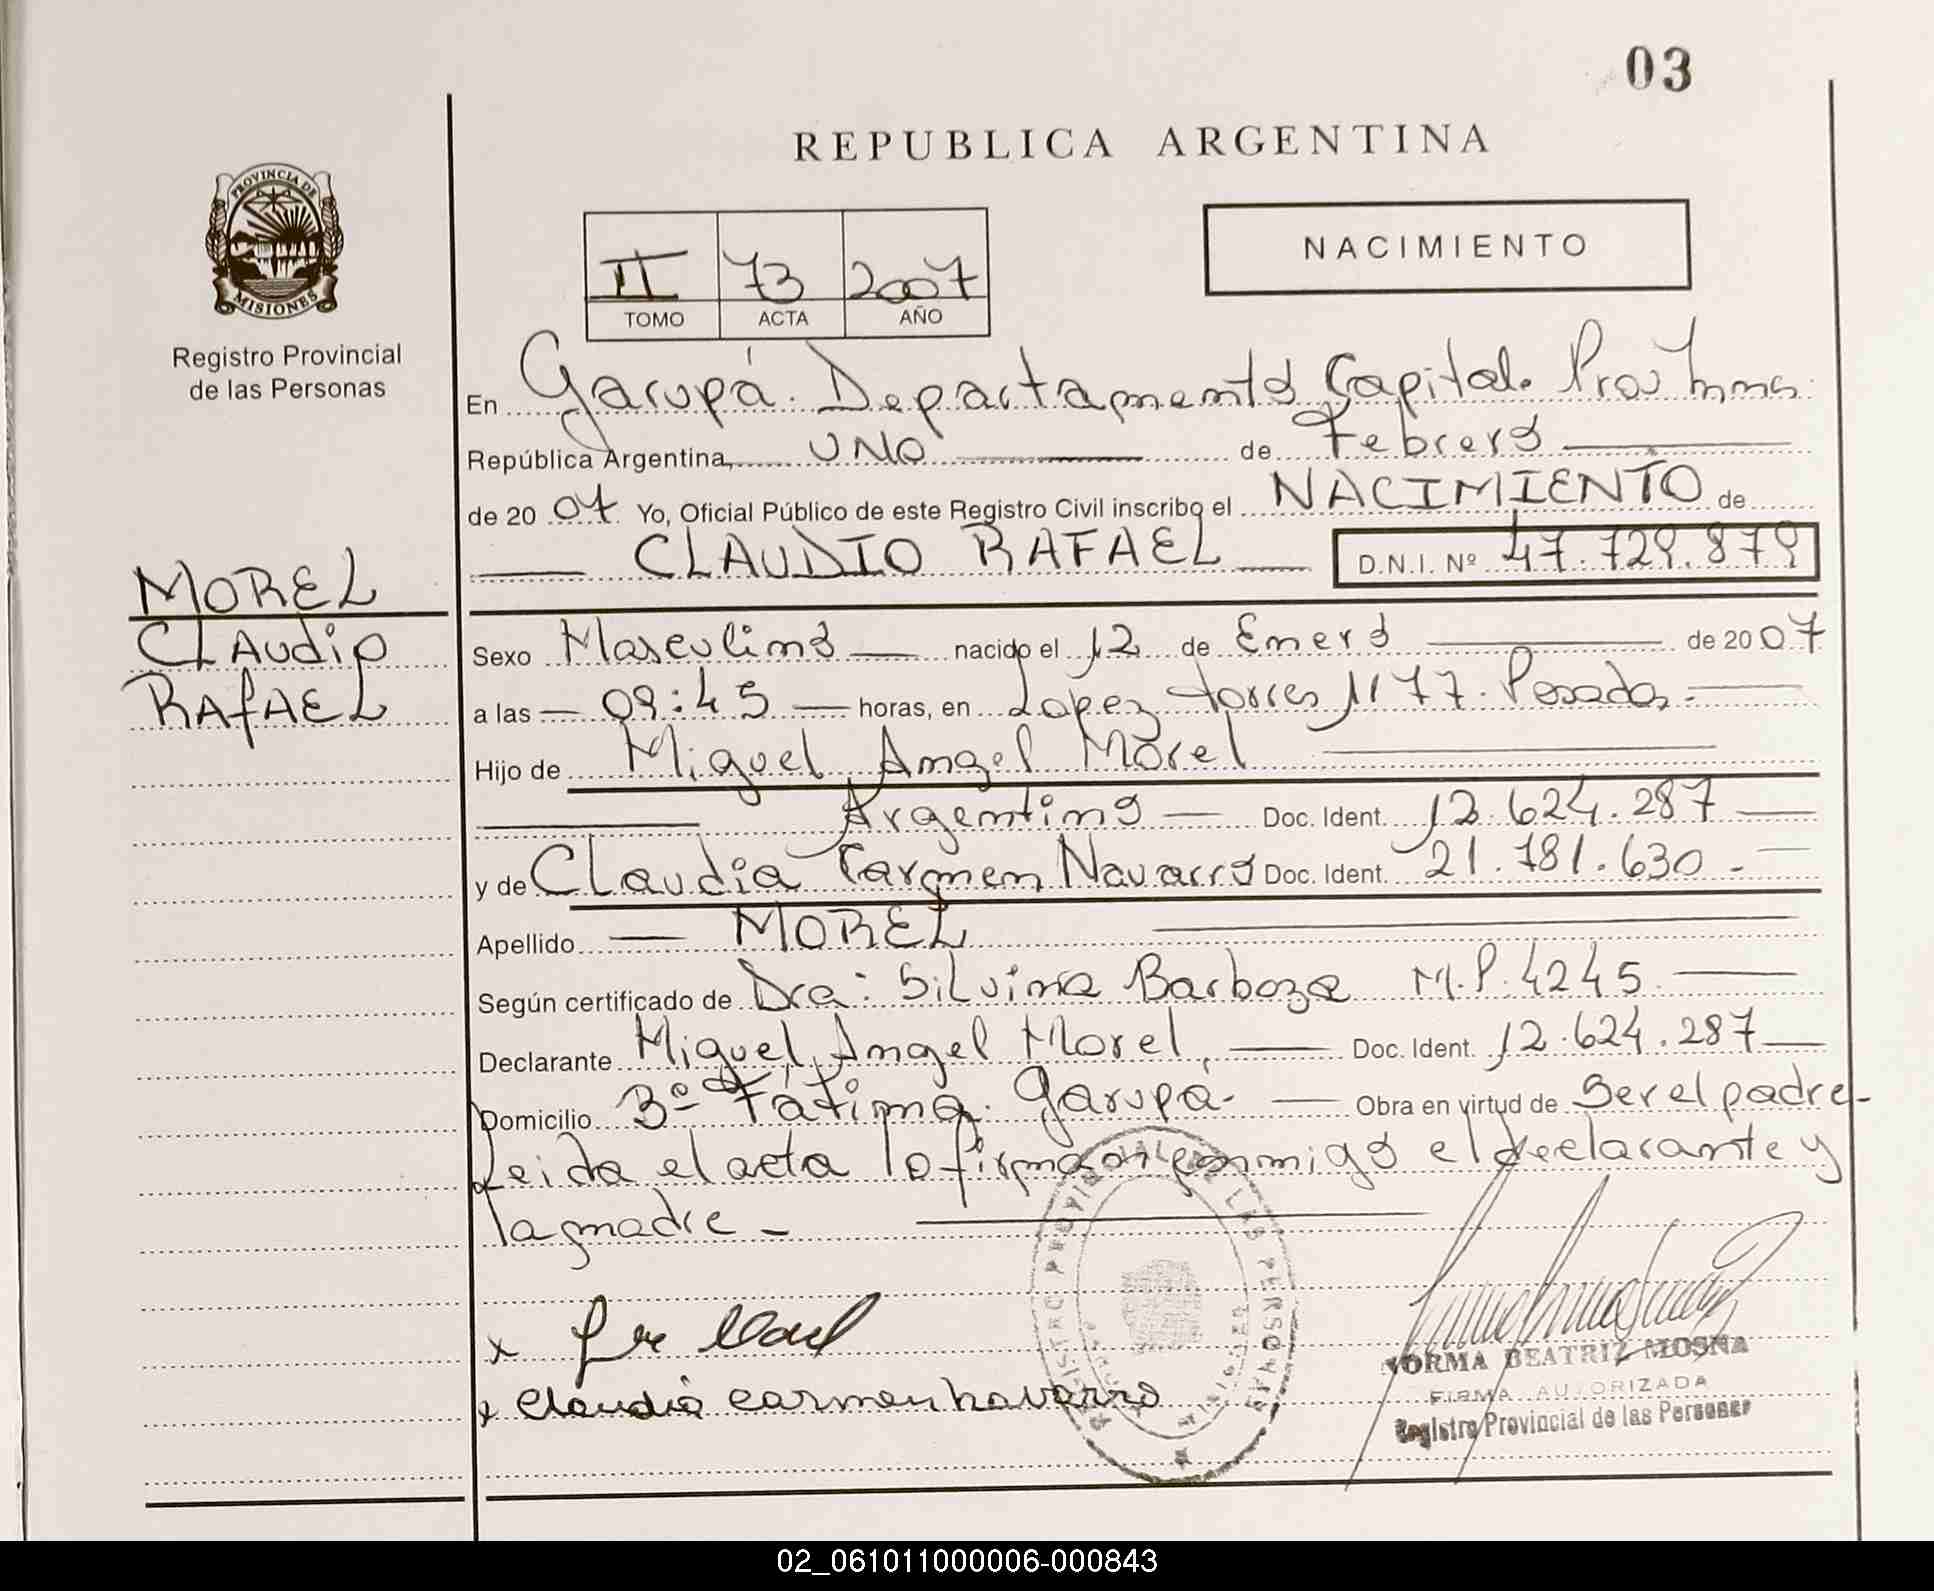 03
REPUBLICA ARGENTINA
PROVINCIA DE
MISIONES
Registro Provincial
de las Personas
II 73 2007
TOMO ACTA AÑO
NACIMIENTO
En Garupá. Departamento Capital. Prov Mnes.
República Argentina, UNO de Febrero
de 20 07 Yo, Oficial Público de este Registro Civil inscribo el NACIMIENTO de
CLAUDIO RAFAEL D.N.I. Nº 47.729.879
MOREL
CLAudio
RAfAEL
Sexo Masculino nacido el 12 de Enero de 20 07
a las 09:45 horas, en Lopez torres 1177. Posadas.
Hijo de Miguel Angel Morel
Argentino Doc. Ident. 12.624.287
y de Claudia Carmen Navarro Doc. Ident. 21.781.630.-
Apellido MOREL
Según certificado de Dra: Silvina Barboza M.P. 4245
Declarante Miguel Angel Morel, Doc. Ident. 12.624.287
Domicilio Bº Fátima. Garupá- Obra en virtud de Ser el padre-
Leida el acta lo firman conmigo el declarante y
la madre -
x Morel
x Claudia carmen navarro
REGISTRO PROVINCIAL DE LAS PERSONAS
NORMA BEATRIZ MOSNA
FIRMA AUTORIZADA
Registro Provincial de las Personas
02_061011000006-000843